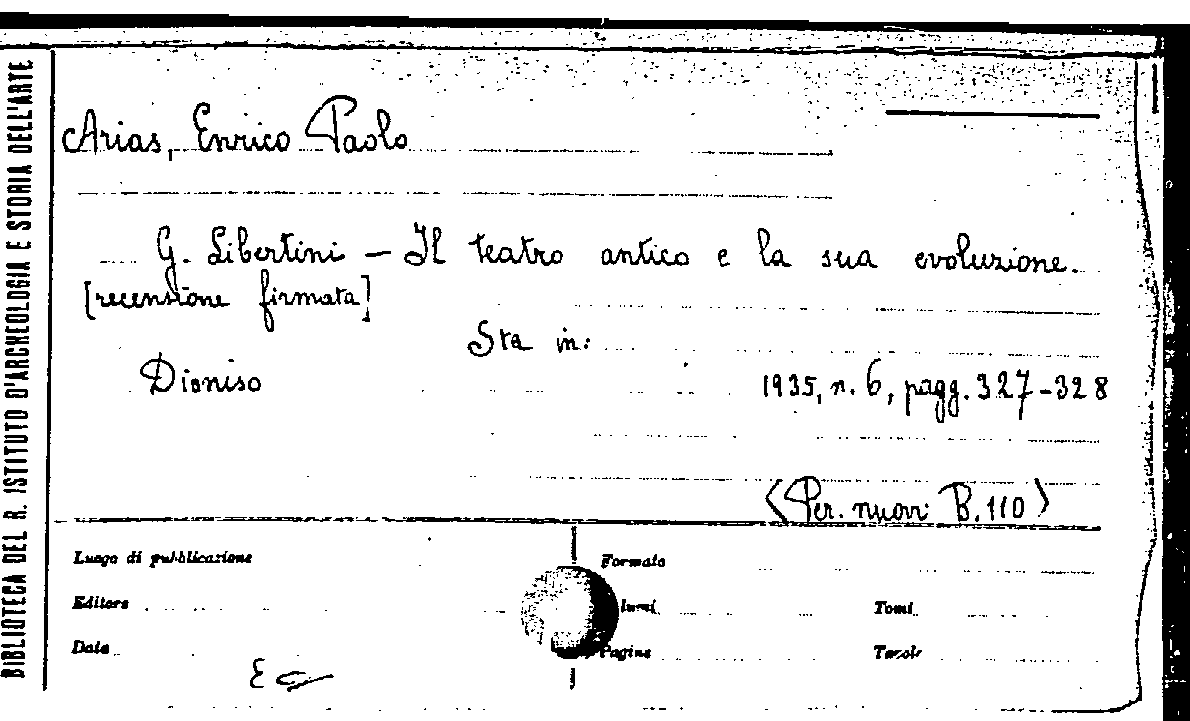 BIBLIOTECA DEL R. ISTITUTO D'ARCHEOLOGIA E STORIA DELL'ARTE
Arias, Enrico Paolo
G. Libertini – Il teatro antico e la sua evoluzione.
[recensione firmata]
Sta in:
Dioniso 1935, n. 6, pagg. 327-328
<Per. nuovi B. 110>
Luogo di pubblicazione Formato
Editore lumi Tomi
Data Pagine Tavole